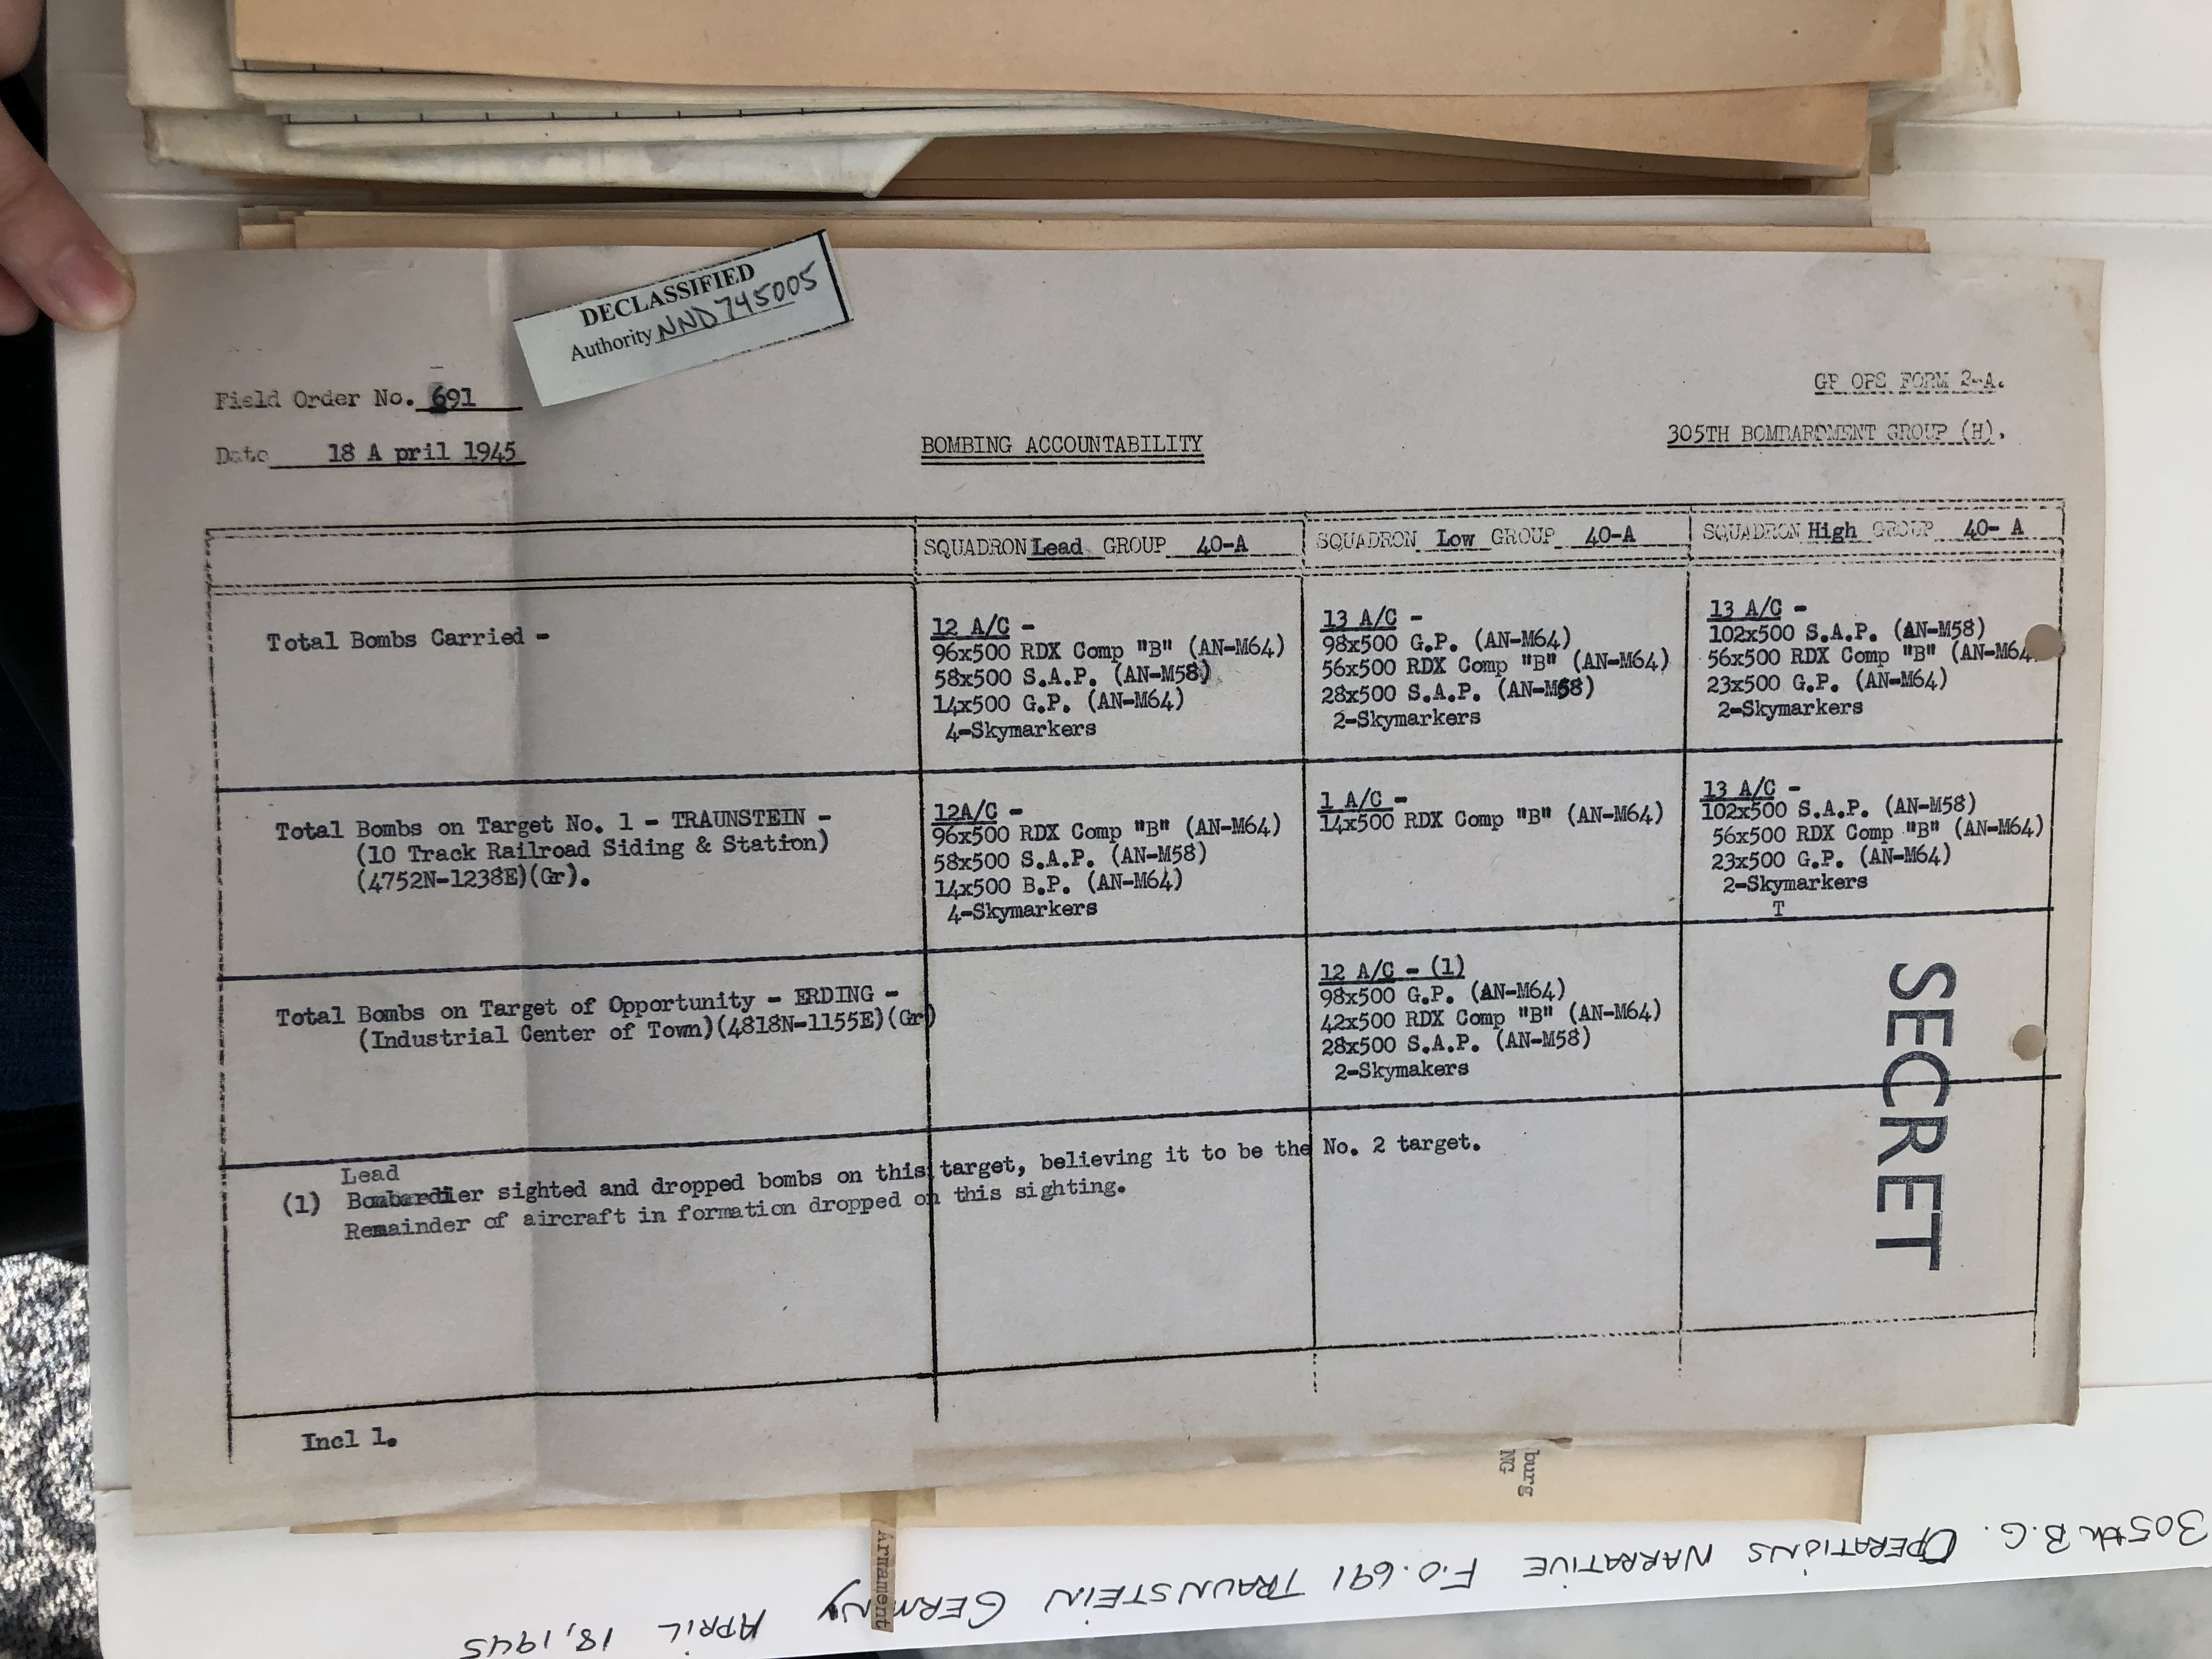 DECLASSIFIED
Authority NND 745005
Field Order No. 691
GP OPS FORM 2-A.
Date 18 A pril 1945
BOMBING ACCOUNTABILITY
305TH BOMBARDMENT GROUP (H).
SQUADRON Lead GROUP 40-A
SQUADRON Low GROUP 40-A
SQUADRON High GROUP 40- A
Total Bombs Carried -
12 A/C -
96x500 RDX Comp "B" (AN-M64)
58x500 S.A.P. (AN-M58)
14x500 G.P. (AN-M64)
4-Skymarkers
13 A/C -
98x500 G.P. (AN-M64)
56x500 RDX Comp "B" (AN-M64)
28x500 S.A.P. (AN-M58)
2-Skymarkers
13 A/C -
102x500 S.A.P. (AN-M58)
56x500 RDX Comp "B" (AN-M64
23x500 G.P. (AN-M64)
2-Skymarkers
Total Bombs on Target No. 1 - TRAUNSTEIN -
(10 Track Railroad Siding & Station)
(4752N-1238E)(Gr).
12A/C -
96x500 RDX Comp "B" (AN-M64)
58x500 S.A.P. (AN-M58)
14x500 B.P. (AN-M64)
4-Skymarkers
1 A/C -
14x500 RDX Comp "B" (AN-M64)
13 A/C -
102x500 S.A.P. (AN-M58)
56x500 RDX Comp "B" (AN-M64)
23x500 G.P. (AN-M64)
2-Skymarkers
T
Total Bombs on Target of Opportunity - ERDING -
(Industrial Center of Town)(4818N-1155E)(Gr)
12 A/C - (1)
98x500 G.P. (AN-M64)
42x500 RDX Comp "B" (AN-M64)
28x500 S.A.P. (AN-M58)
2-Skymakers
SECRET
Lead
(1) Bombardier sighted and dropped bombs on this target, believing it to be the No. 2 target.
Remainder of aircraft in formation dropped on this sighting.
Incl 1.
burg
NG
Armament
305th B.G. OPERATIONS NARRATIVE F.O.691 TRAUNSTEIN GERMANY APRIL 18, 1945